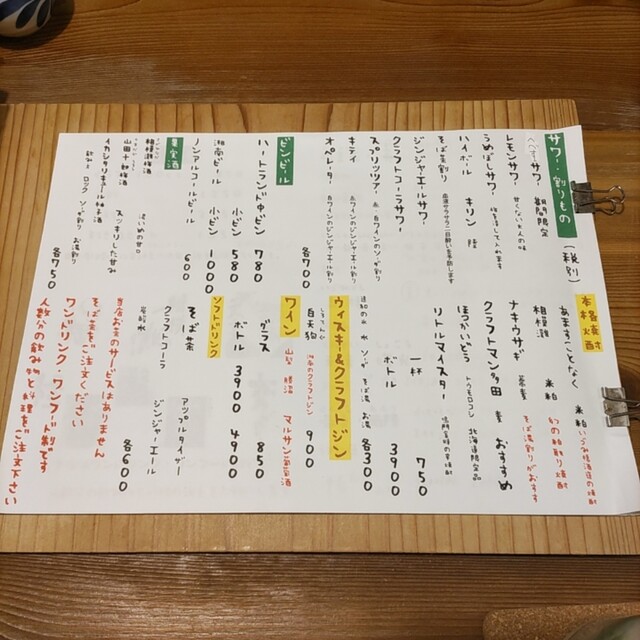 サワー・割りもの(税別)
サワー 期間限定
レモンサワー 甘くない大人の味
うめぼしサワー 梅を潰して入れます
ハイボール キリン 陸
そば茶割り 血液サラサラ二日酔いを予防します
ジンジャーエールサワー
クラフトコーラサワー
スプリッツァー 赤・白ワインのソーダ割り
キティ 赤ワインのジンジャーエール割り
オペレーター 白ワインのジンジャーエール割り
各700
ビンビール
ハートランド中ビン 780
湘南ビール 小ビン 580
小ビン 1000
ノンアルコールビール 600
果実酒
相模灘梅酒 ほどよい甘口
山田十郎梅酒 スッキリした甘み
イカシャリキュール柚子酒
飲み方 ロック ソーダ割り お湯割り
各750
本格焼酎
あますことなく 米粕 いづみ橋酒造の焼酎
相模灘 米粕 幻の粕取り焼酎
ナキウサギ 蕎麦 そば湯割りがおすすめ
クラフトマン多田 麦 おすすめ
ほっかいどう トウモロコシ 北海道限定品
リトルマイスター
一杯 750
ボトル 3900
追加の氷 水 ソーダ そば湯 お湯 各300
ウィスキー&クラフトジン
白天狗 クラフトジン 900
ワイン
山梨 勝沼 マルサン葡萄酒
グラス 850
ボトル 3900 4900
ソフトドリンク
そば茶 アップルタイザー
クラフトコーラ ジンジャーエール
炭酸水
各600
当店お水のサービスはありません
そば茶をご注文ください
ワンドリンク・ワンフード制です
人数分の飲み物と料理をご注文下さい